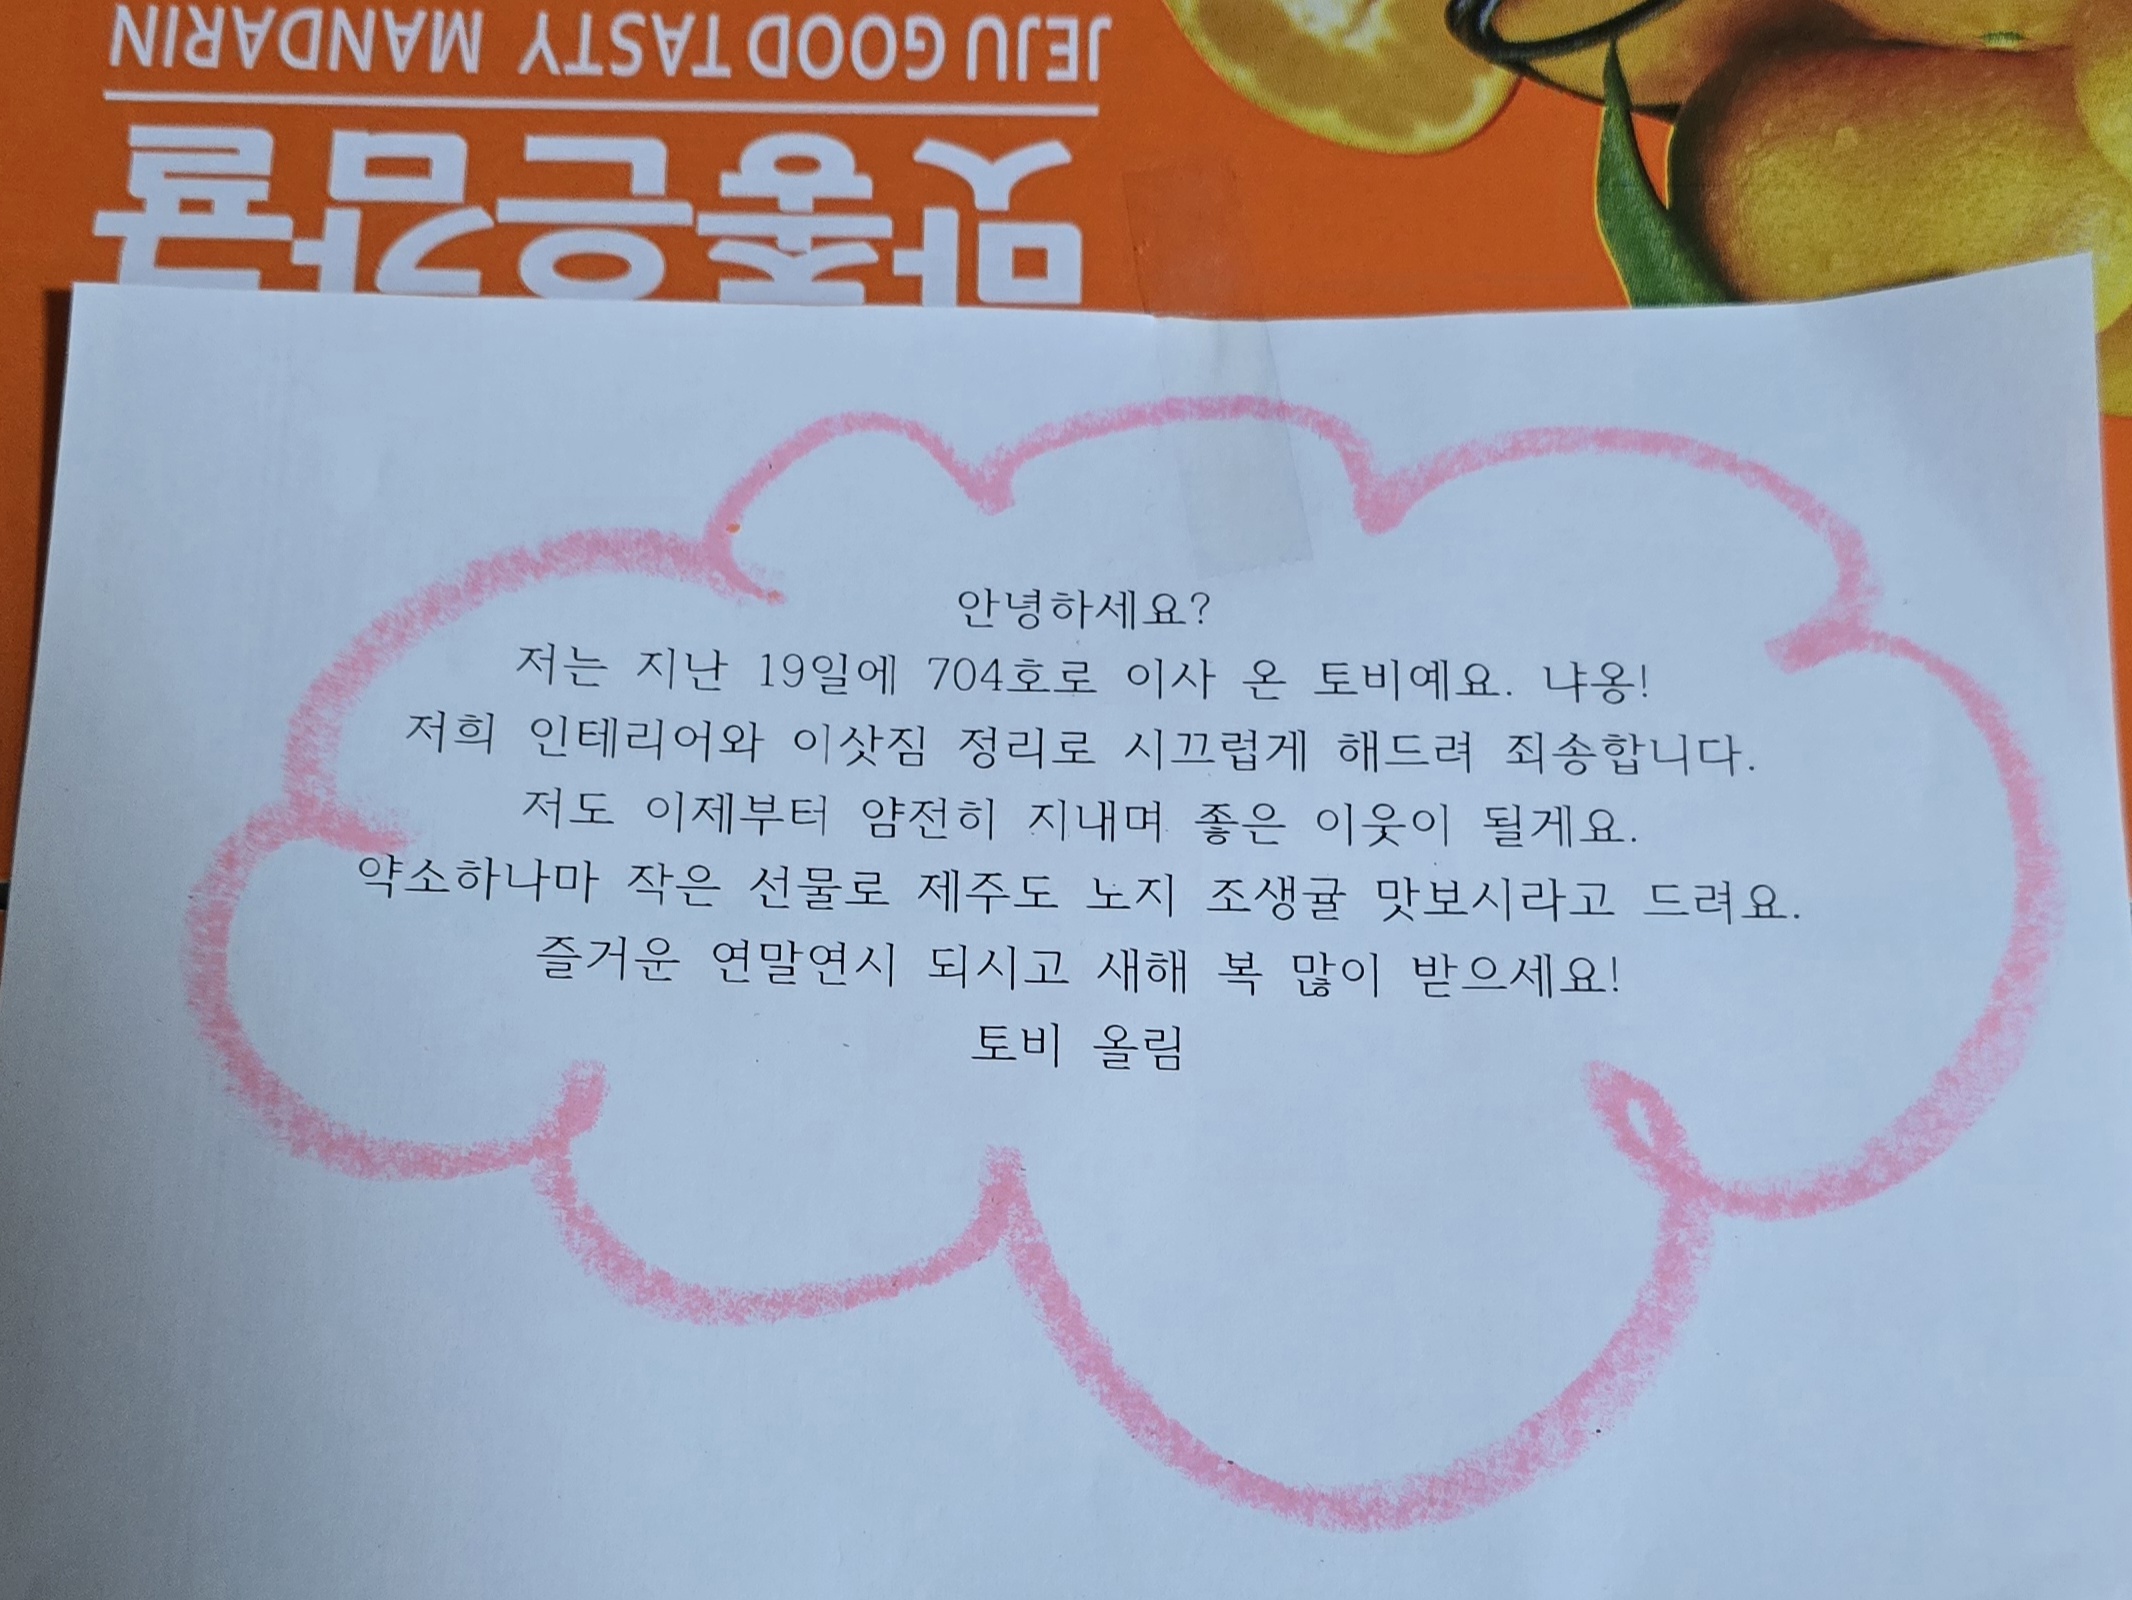 JEJU GOOD TASTY MANDARIN
맛좋은감귤
안녕하세요?
저는 지난 19일에 704호로 이사 온 토비예요. 냐옹!
저희 인테리어와 이삿짐 정리로 시끄럽게 해드려 죄송합니다.
저도 이제부터 얌전히 지내며 좋은 이웃이 될게요.
약소하나마 작은 선물로 제주도 노지 조생귤 맛보시라고 드려요.
즐거운 연말연시 되시고 새해 복 많이 받으세요!
토비 올림